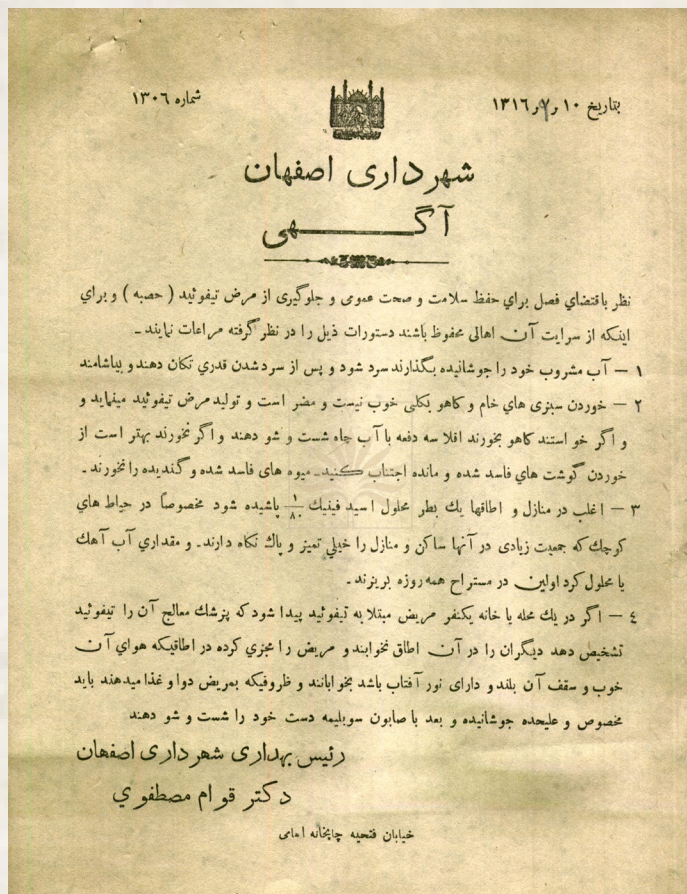 بتاریخ ۱۰ ر ۷ ر ۱۳۱۶
شماره ۱۳۰۶
شهرداری اصفهان
آگهی
نظر باقتضاي فصل براي حفظ سلامت و صحت عمومی و جلوگیری از مرض تیفوئید ( حصبه ) و براي
اینکه از سرایت آن اهالی محفوظ باشند دستورات ذیل را در نظر گرفته مراعات نمایند ـ
۱ — آب مشروب خود را جوشانیده بگذارند سرد شود و پس از سرد شدن قدري تکان دهند و بیاشامند
۲ — خوردن سبزی هاي خام و کاهو بکلی خوب نیست و مضر است و تولید مرض تیفوئید مینماید و
و اگر خواستند کاهو بخورند اقلا سه دفعه با آب چاه شست و شو دهند و اگر نخورند بهتر است از
خوردن گوشت هاي فاسد شده و مانده اجتناب کنید ـ میوه های فاسد شده و گندیده را نخورند ـ
۳ — اغلب در منازل و اطاقها یك بطر محلول اسید فینیك ۱/۸۰ پاشیده شود مخصوصاً در حیاط هاي
کوچك که جمعیت زیادی در آنها ساکن و منازل را خیلي تمیز و پاك نگاه دارند ـ و مقداري آب آهك
یا محلول کرداولین در مستراح همه روزه بریزند ـ
٤ — اگر در یك محله یا خانه یکنفر مریض مبتلا به تیفوئید پیدا شود که پزشك معالج آن را تیفوئید
تشخیص دهد دیگران را در آن اطاق نخوابند و مریض را مجزي کرده در اطاقیکه هواي آن
خوب و سقف آن بلند و دارای نور آفتاب باشد بخوابانند و ظروفیکه بمریض دوا و غذا میدهند باید
مخصوص و علیحده جوشانیده و بعد با صابون سوبلیمه دست خود را شست و شو دهند
رئیس بهداری شهرداری اصفهان
دکتر قوام مصطفوي
خیابان فتحیه چاپخانه امامی